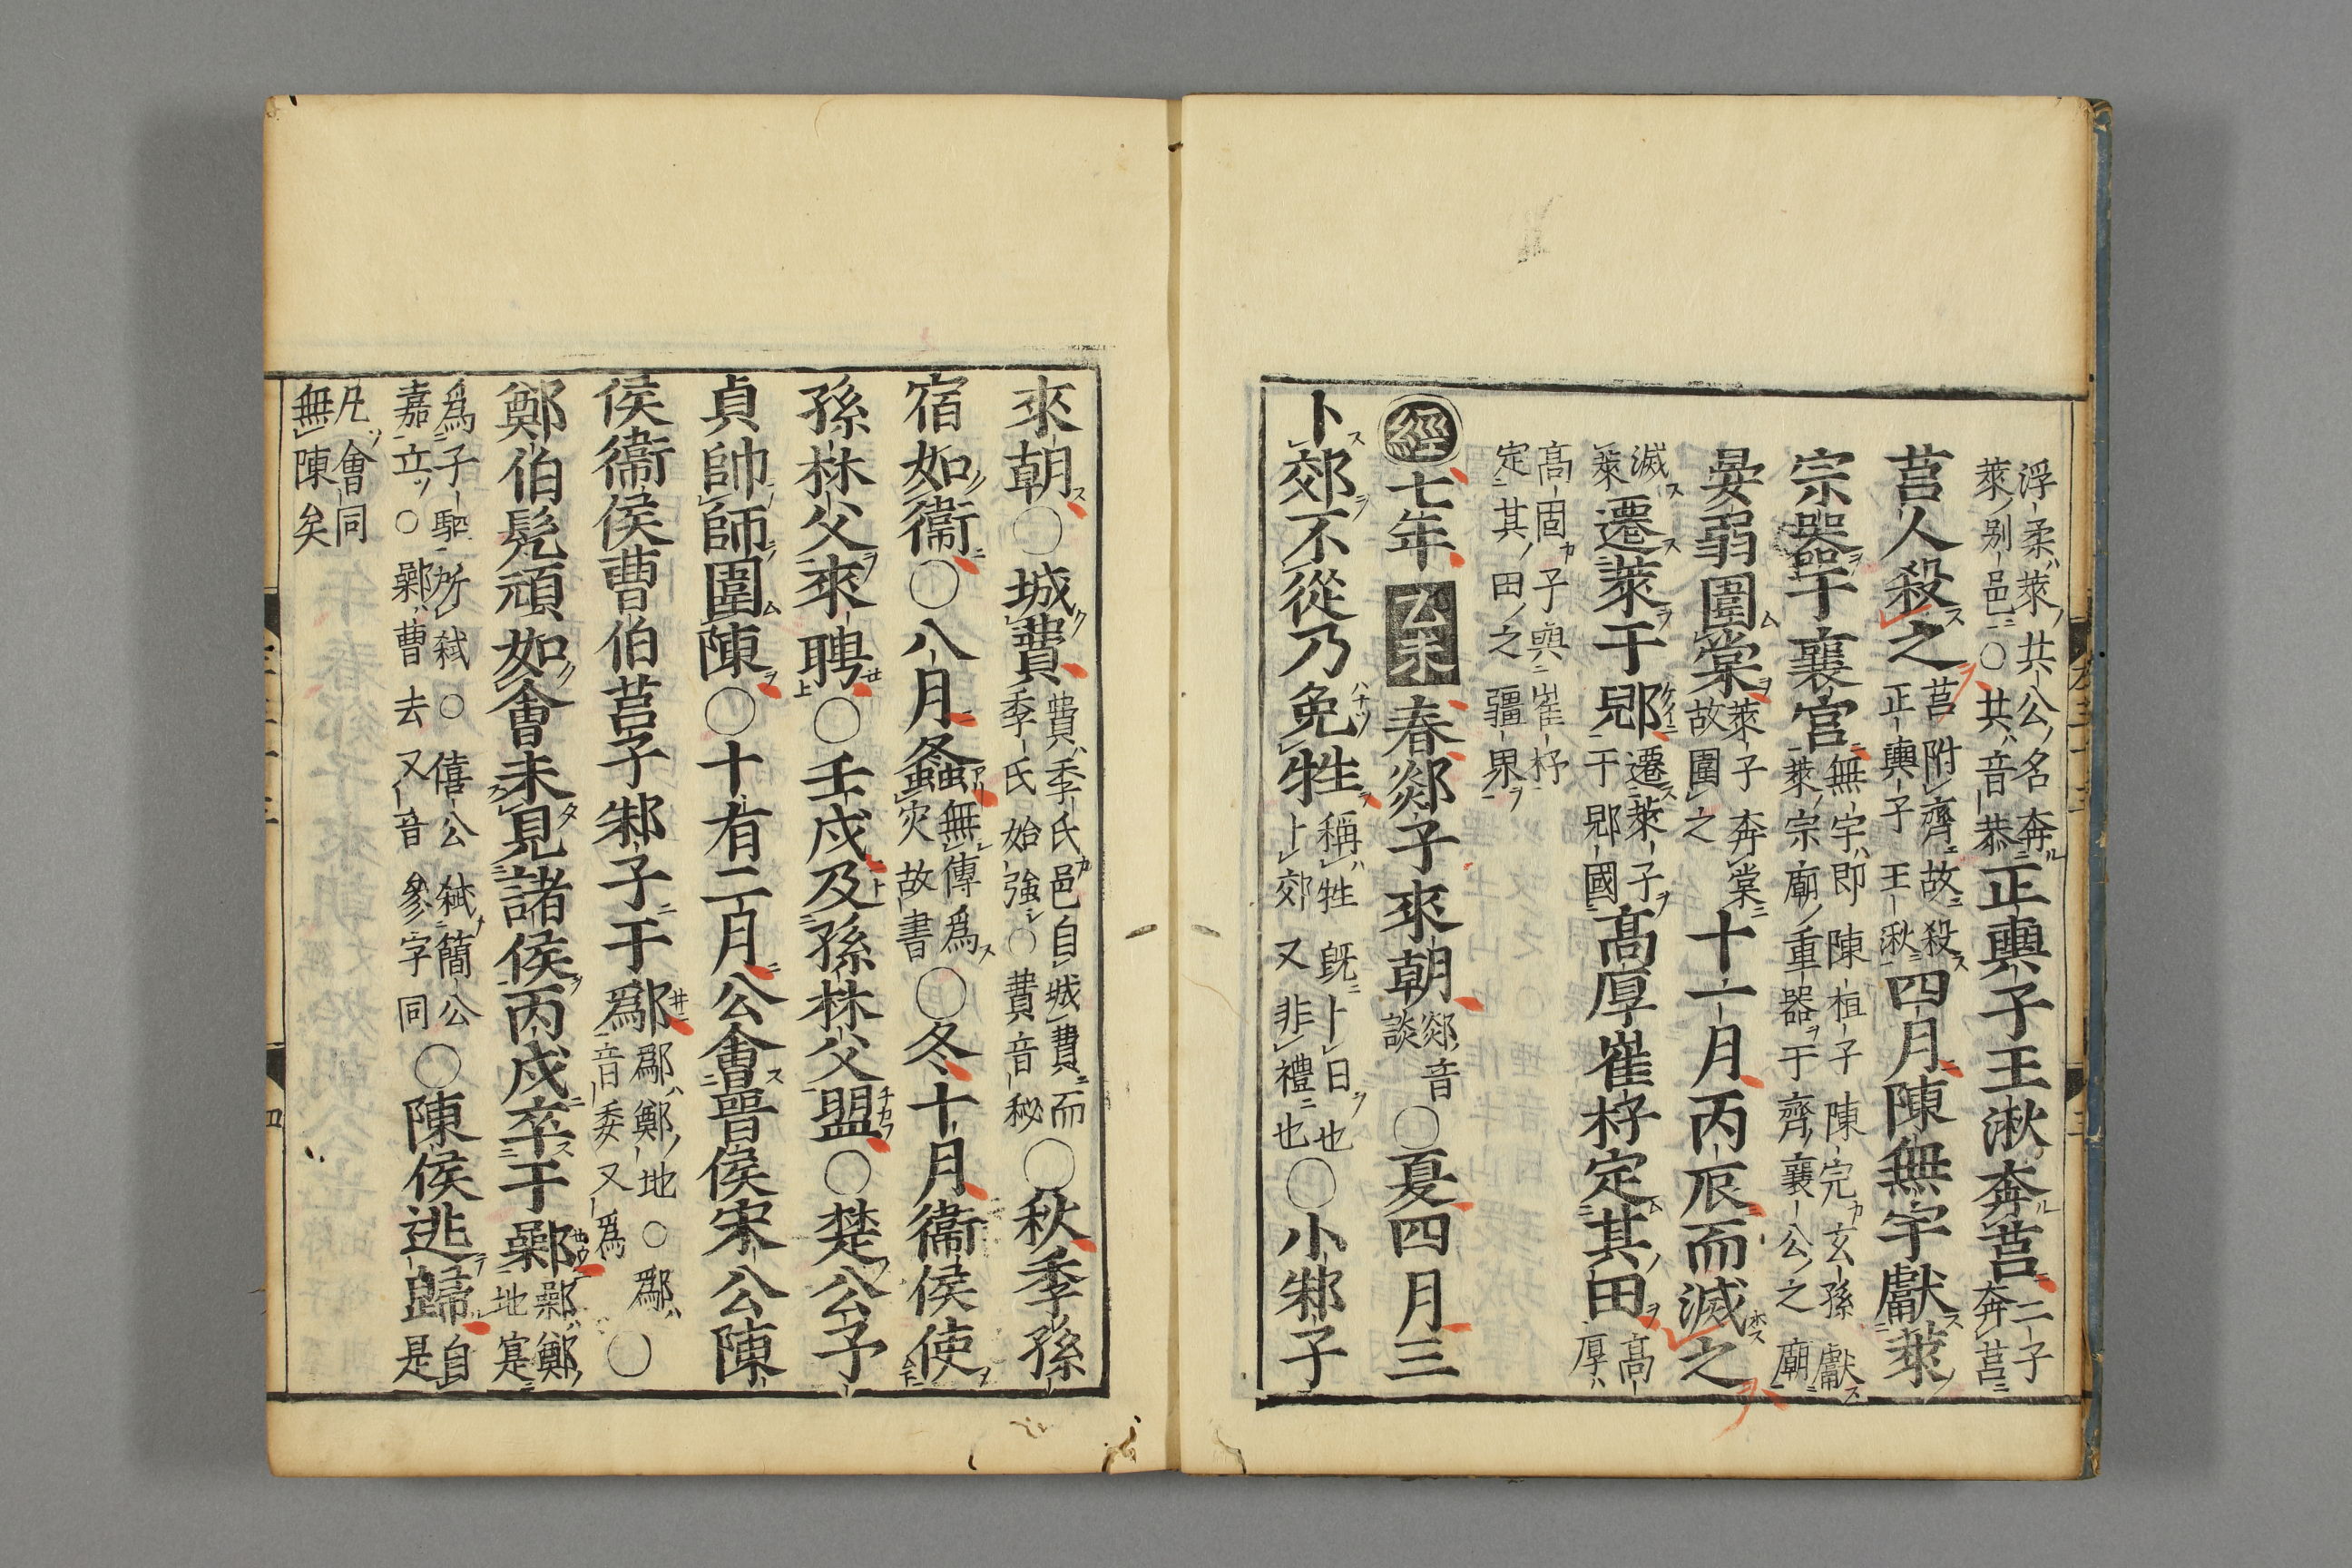 浮柔萊共公名奔萊別邑○共音恭正輿子王湫奔莒二子奔莒
莒人殺之莒附齊故殺正輿子王湫四月陳無宇獻萊
宗器于襄宮無宇即陳桓子陳完玄孫獻萊宗廟重器于齊襄公之廟
晏弱圍棠萊子奔棠故圍之十一月丙辰而滅之
滅萊遷萊于郳遷萊子于郳國髙厚崔杼定其田髙厚
髙固子與崔杼定其田之疆界
經七年乙未春郯子來朝郯音談○夏四月三
卜郊不從乃免牲稱牲既卜日也卜郊又非禮也○小邾子
來朝○城費費季氏邑自城費而季氏始強○費音秘○秋季孫
宿如衞○八月螽無傳為災故書○冬十月衞侯使
孫林父來聘○壬戌及孫林父盟○楚公子
貞帥師圍陳○十有二月公會晉侯宋公陳
侯衞侯曹伯莒子邾子于鄬鄬鄭地○鄬音委又為○
鄭伯髡頑如會未見諸侯丙戌卒于鄵鄵鄭地寔
為子駟所弑○僖公弑簡公嘉立○鄵曹去又音參字同○陳侯逃歸自是
凡會同無陳矣